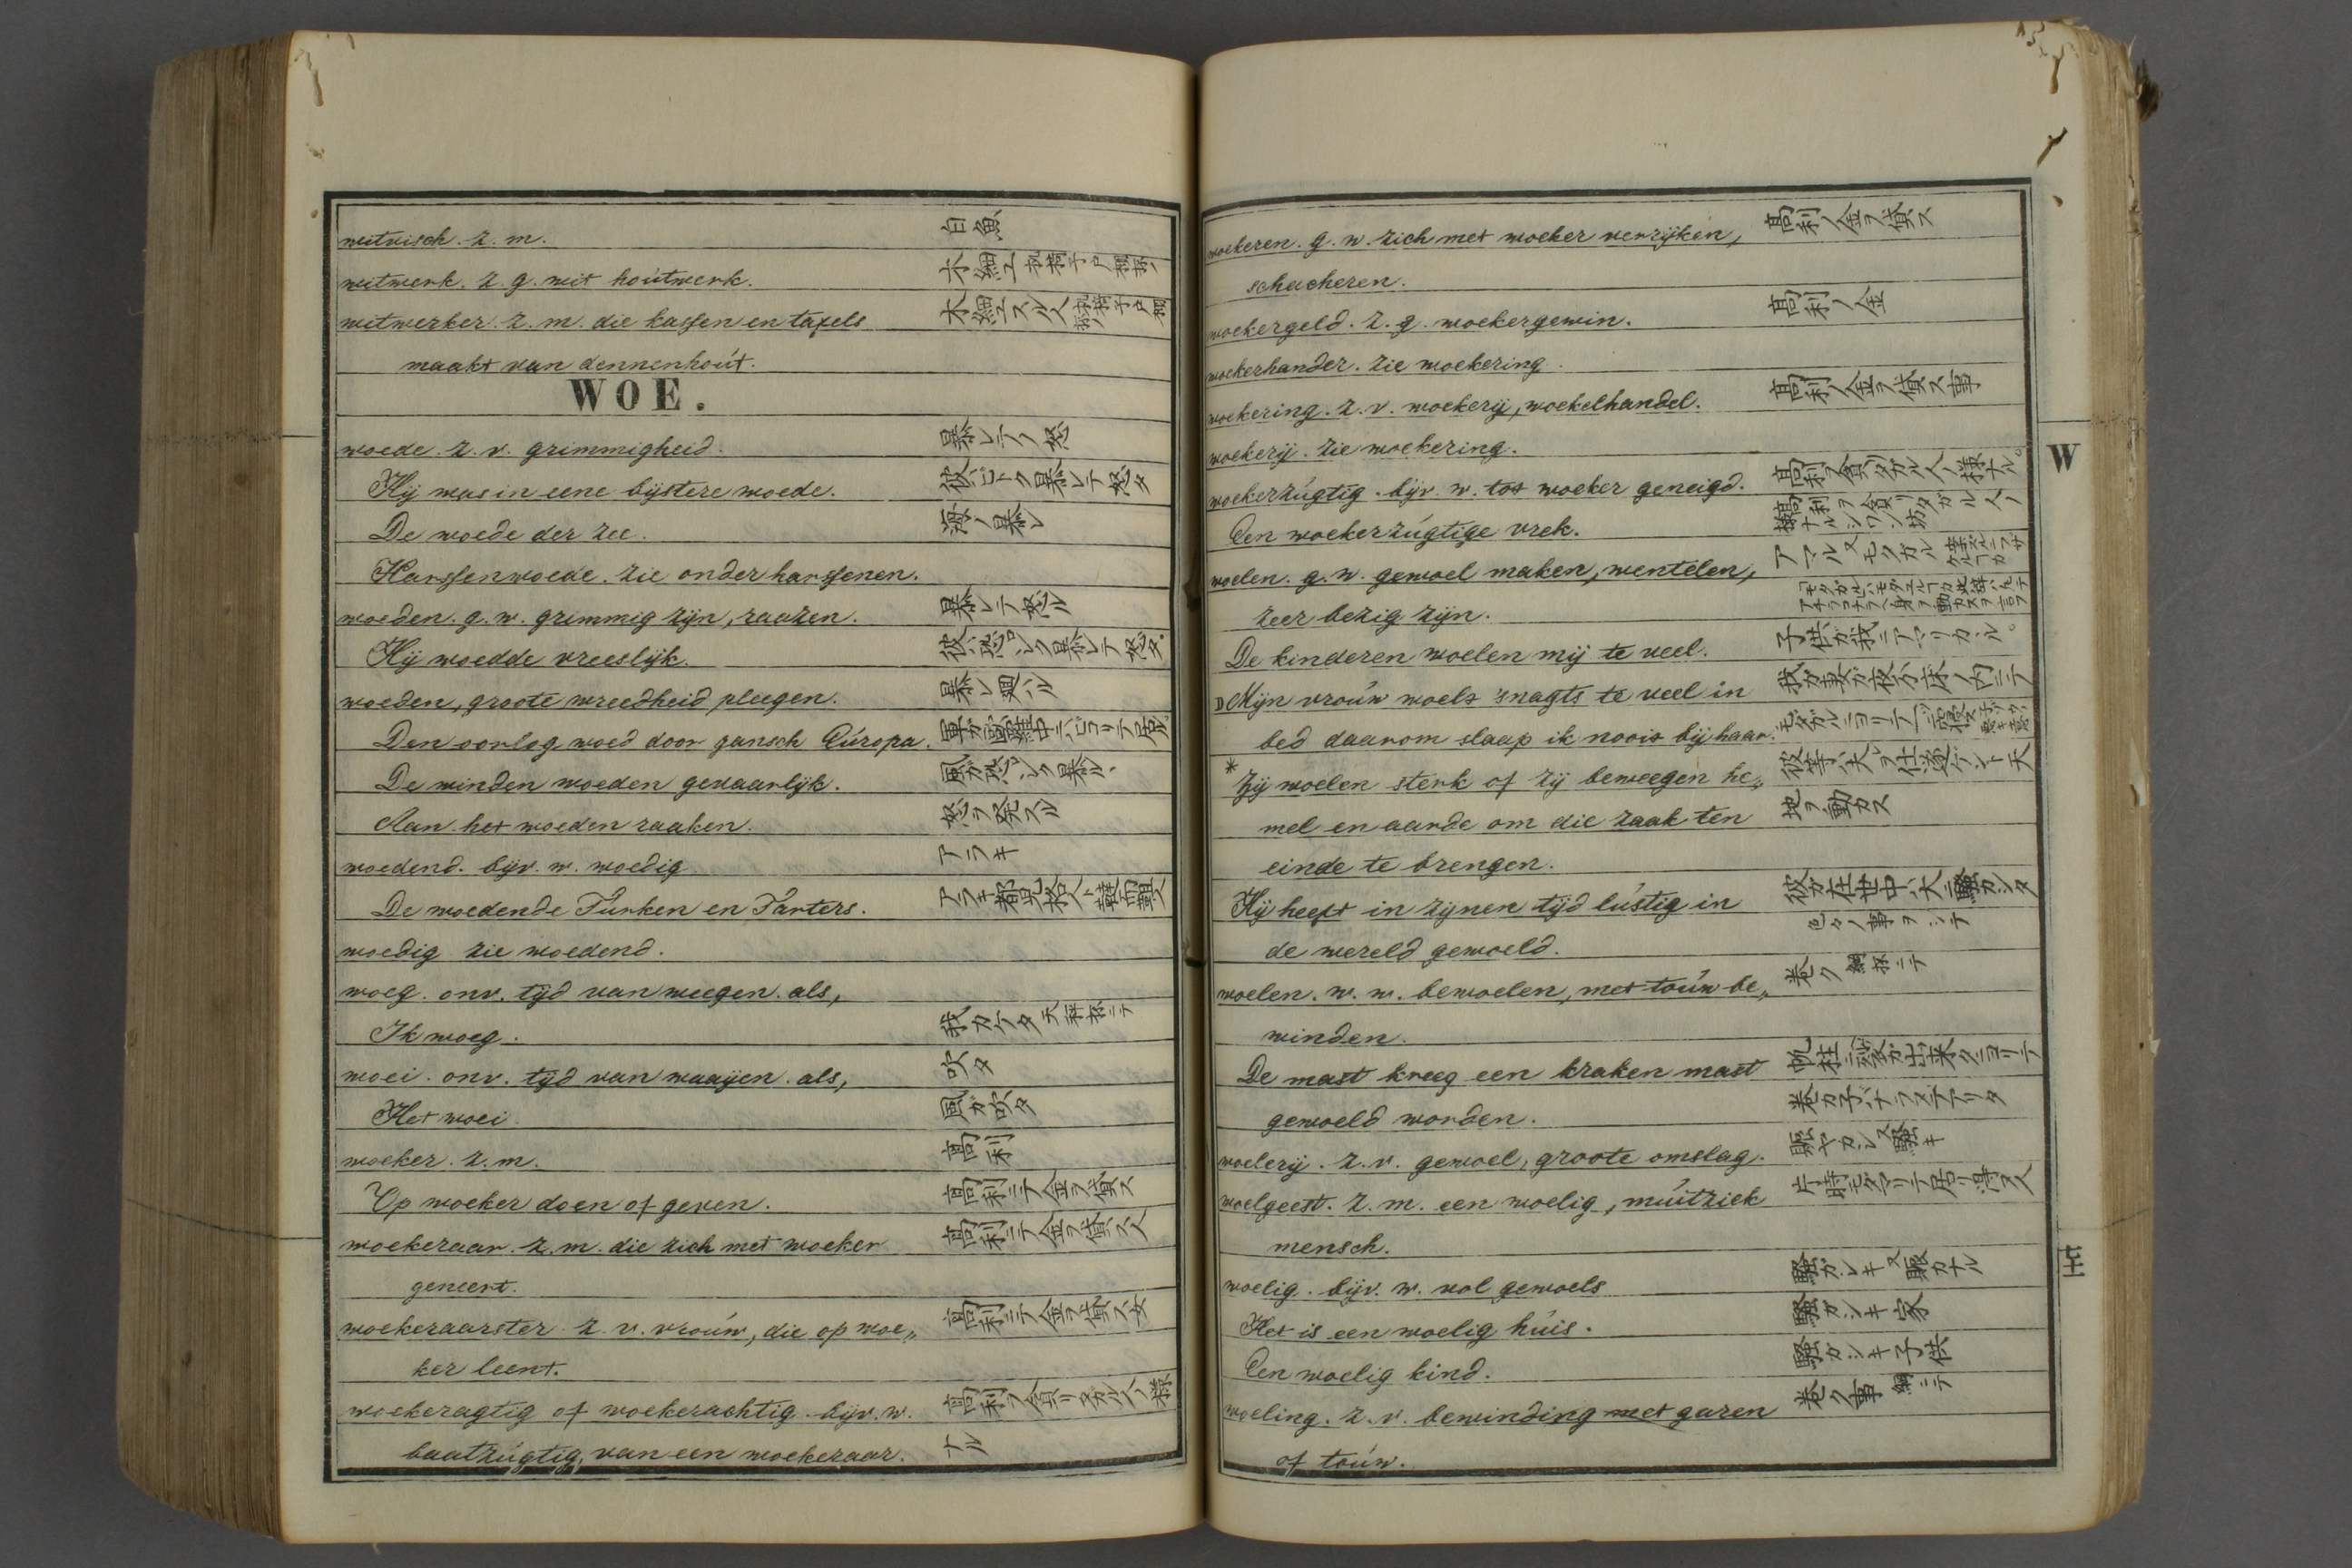 witvisch. z. m. 白魚
witwerk. z. g. wit houtwerk. 木細工
witwerker. z. m. die kassen en tafels 木細工スル人
maakt van dennenhout.
WOE.
woede. z. v. grimmigheid. 暴レテノ怒
Hij was in eene bystere woede. 彼ハヒドク暴レテ怒タ
De woede der zee. 海ノ暴レ
Harssenwoede. zie onder harssenen.
woeden. g. w. grimmig zijn, raazen. 暴レテ怒ル
Hij woedde vreeslijk. 彼ハ恐ロシク暴レテ怒タ。
woeden, groote wreedheid pleegen. 暴レ廻ハル
Den oorlog woed door gansch Europa.
De winden woeden gevaarlijk. 風ガ恐ロシク暴ルヽ
Aan het woeden raaken. 怒ヲ発スル
woedend. bijv. w. woedig アラキ
De woedende Turken en Tarters.
woedig zie woedend.
woeg. onv. tijd van weegen. als,
Ik woeg. 我カケタ 天秤抔ニテ
woei. onv. tijd van waaijen. als, 吹タ
Het woei. 風ガ吹タ
woeker. z. m. 高利
Op woeker doen of geven. 高利ニテ金ヲ貸ス
woekeraar. z. m. die zich met woeker 高利ニテ金ヲ貸ス人
geneert.
woekeraarster z. v. vrouw, die op woe„ 高利ニテ金ヲ貸ス女
ker leent.
woekeragtig of woekerachtig. bijv. w. 高利ヲ貪リタガル人ノ様
baatzugtig, van een woekeraar. ナル
woekeren. g. w. zich met woeker verrijken, 高利ノ金ヲ貸ス
schacheren.
woekergeld. z. g. woekergewin. 高利ノ金
woekerhander. zie woekering.
woekering. z. v. woekerij, woekelhandel. 高利ノ金ヲ貸ス事
woekerij. zie woekering.
woekerzugtig. bijv. w. tot woeker geneigd. 高利ヲ貪リタガル人ノ様ナル。
Een woekerzugtige vrek. 高利ヲ貪リタガル人ノ様ナルシワン坊
woelen. g. w. gewoel maken, wentelen, アマル又モタガル
zeer bezig zijn.
De kinderen woelen mij te veel. 子供ガ我ニアマリカル。
Mijn vrouw woelt 'snagts te veel in 我ガ妻ガ夜分床ノ内ニテ
bed daarom slaap ik nooit bij haar.
*
Zij woelen sterk of zij beweegen he„ 彼等ハ夫ヲ仕遂ケント天
mel en aarde om die zaak ten 地ヲ動カス
einde te brengen.
Hij heeft in zijnen tijd lustig in 彼ガ在世中ハ大ニ騒カシタ
de wereld gewoeld. 色々ノ事ヲシテ
woelen. w. w. bewoelen, met touw be„ 巻ク 綱抔ニテ
winden.
De mast kreeg een kraken mast 帆柱ニ疵ガ出来タニヨリテ
gewoeld worden. 巻カ子バナラヌテアリタ
woelerij. z. v. gewoel, groote omslag. 賑ヤカシ又騒キ
woelgeest. z. m. een woelig, muitziek
mensch.
woelig. bijv. w. vol gewoels 騒ガシキ又賑カナル
Het is een woelig huis. 騒カシキ家
Een woelig kind. 騒カシキ子供
woeling. z. v. bewinding met garen 巻ク事 綱ニテ
of touw.
W